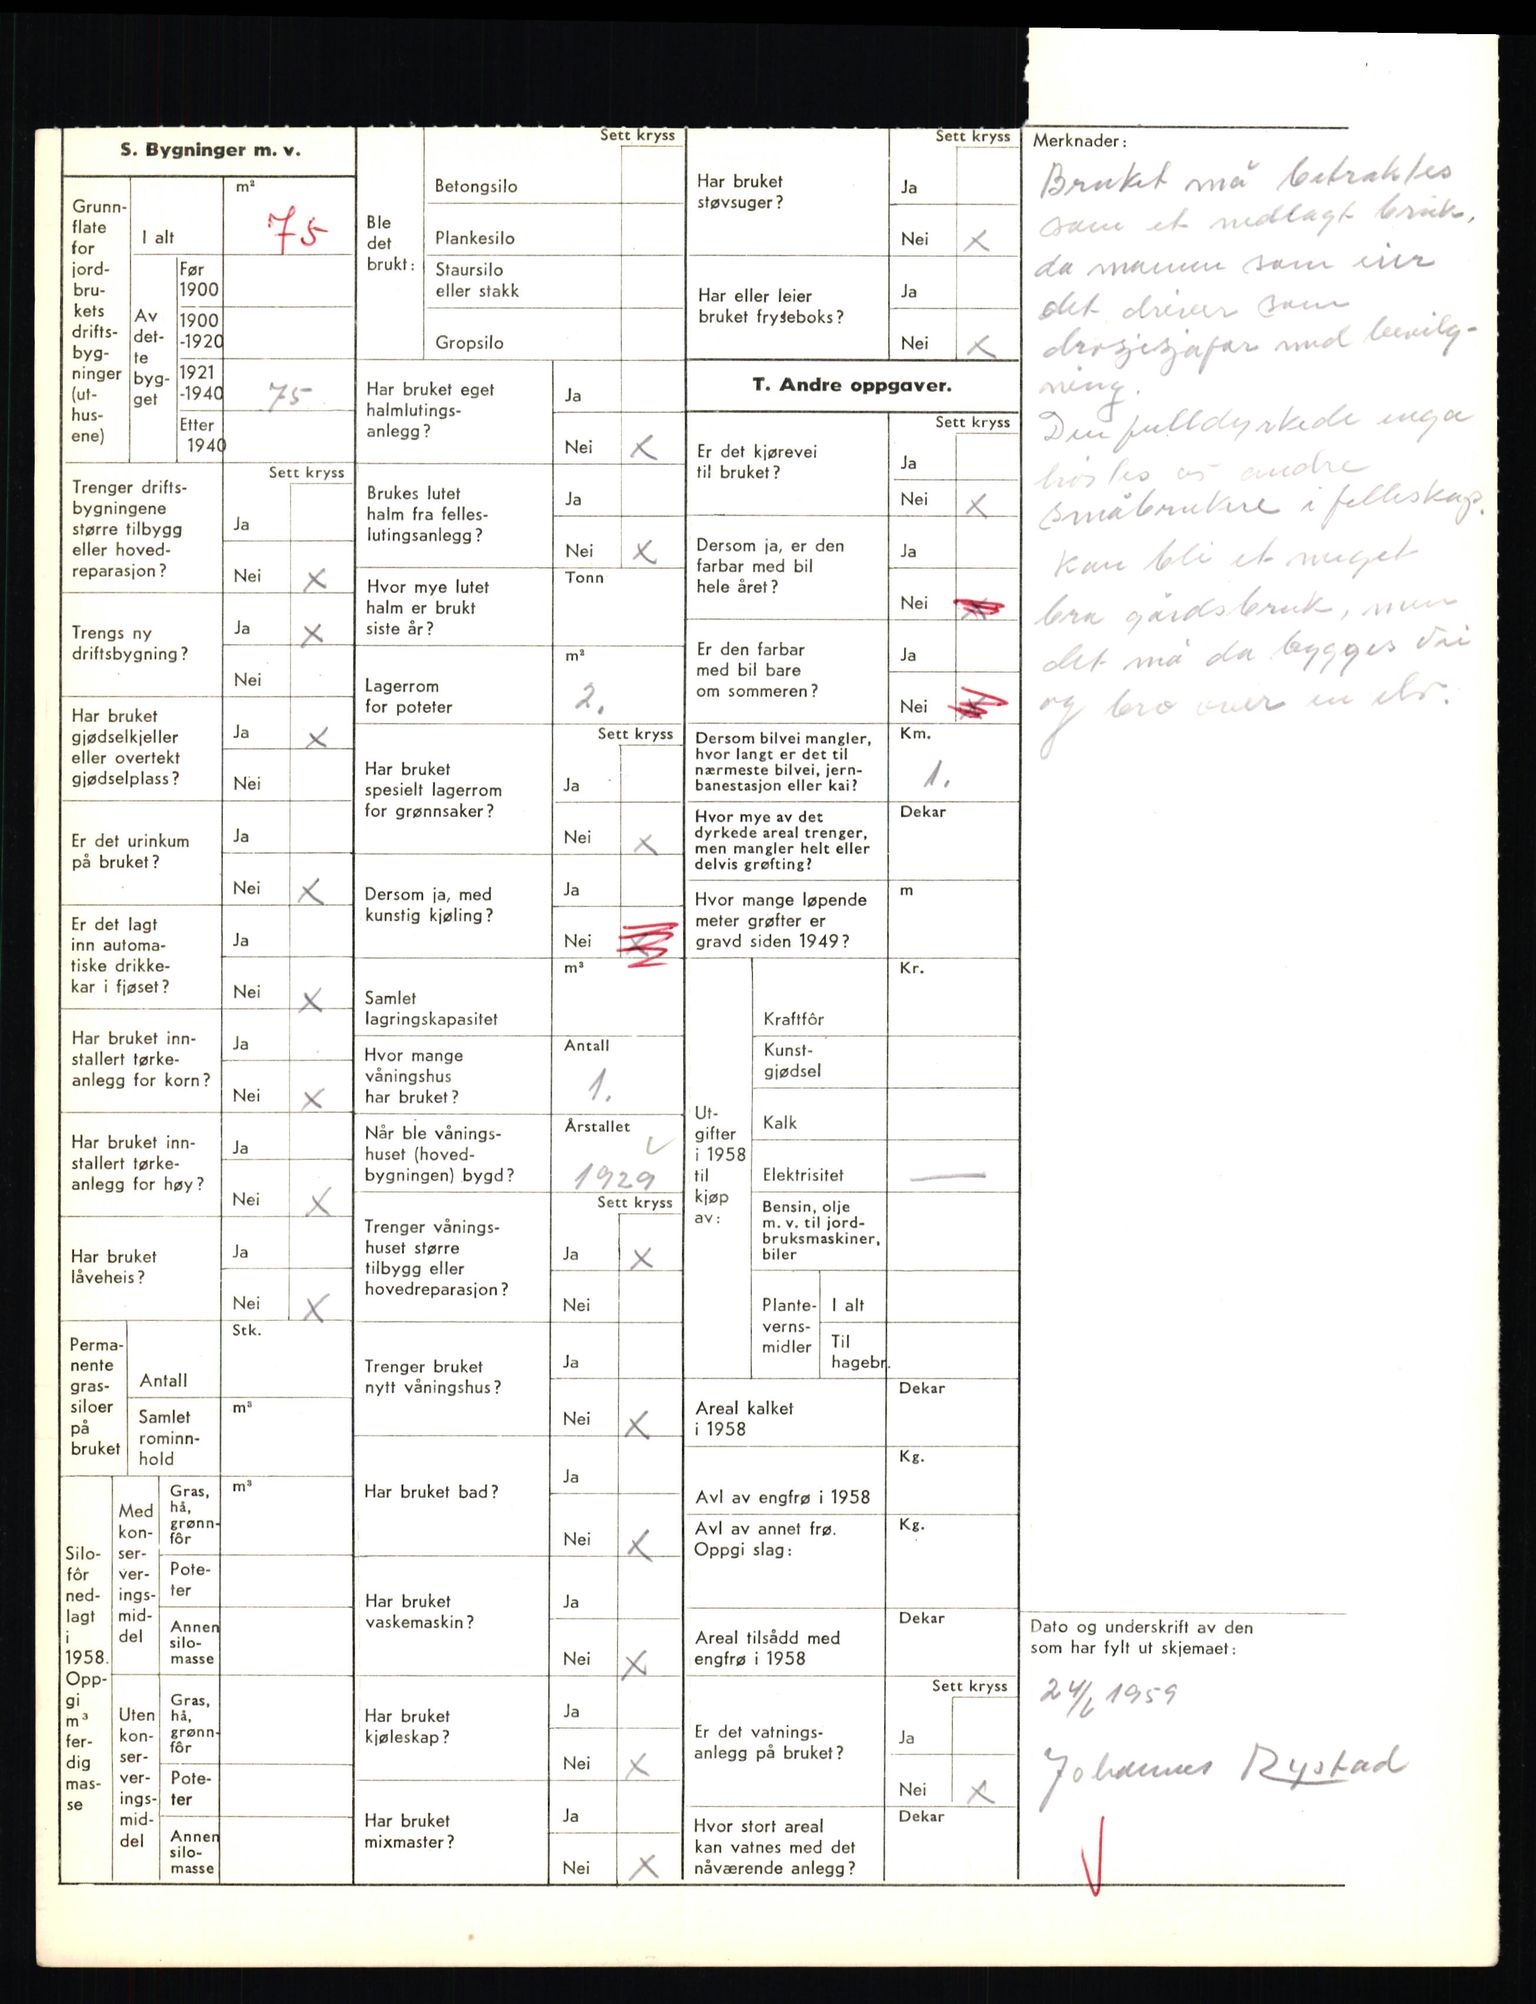 S. Bygninger m. v.
Grunn-
flate
for
jord-
bru-
kets
drifts-
byg-
ninger
(ut-
hus-
ene)
I alt
m²
75
Av
det-
te
byg-
get
Før
1900
1900
-1920
1921
-1940
75
Etter
1940
Sett kryss
Trenger drifts-
bygningene
større tilbygg
eller hoved-
reparasjon?
Ja
Nei X
Trengs ny
driftsbygning?
Ja X
Nei
Har bruket
gjødselkjeller
eller overtekt
gjødselplass?
Ja X
Nei
Er det urinkum
på bruket?
Ja
Nei X
Er det lagt
inn automa-
tiske drikke-
kar i fjøset?
Ja
Nei X
Har bruket inn-
stallert tørke-
anlegg for korn?
Ja
Nei X
Har bruket inn-
stallert tørke-
anlegg for høy?
Ja
Nei X
Har bruket
låveheis?
Ja
Nei X
Perma-
nente
gras-
siloer
på
bruket
Antall
Stk.
Samlet
rominn-
hold
m³
Silo-
fôr
ned-
lagt
i
1958.
Opp-
gi
m³
fer-
dig
mas-
se
Med
kon-
ser-
ver-
ings-
mid-
del
Gras,
hå,
grønn-
fôr
m³
Pote-
ter
Annen
silo-
masse
Uten
kon-
ser-
ver-
ings-
mid-
del
Gras,
hå,
grønn-
fôr
Pote-
ter
Annen
silo-
masse
Ble
det
brukt:
Sett kryss
Betongsilo
Plankesilo
Staursilo
eller stakk
Gropsilo
Har bruket eget
halmlutings-
anlegg?
Ja
Nei X
Brukes lutet
halm fra felles-
lutingsanlegg?
Ja
Nei X
Hvor mye lutet
halm er brukt
siste år?
Tonn
Lagerrom
for poteter
m²
2.
Sett kryss
Har bruket
spesielt lagerrom
for grønnsaker?
Ja
Nei X
Dersom ja, med
kunstig kjøling?
Ja
Nei X
Samlet
lagringskapasitet
m³
Hvor mange
våningshus
har bruket?
Antall
1.
Når ble vånings-
huset (hoved-
bygningen) bygd?
Årstallet
1929
Sett kryss
Trenger vånings-
huset større
tilbygg eller
hovedreparasjon?
Ja X
Nei
Trenger bruket
nytt våningshus?
Ja
Nei X
Har bruket bad?
Ja
Nei X
Har bruket
vaskemaskin?
Ja
Nei X
Har bruket
kjøleskap?
Ja
Nei X
Har bruket
mixmaster?
Ja
Nei X
Sett kryss
Har bruket
støvsuger?
Ja
Nei X
Har eller leier
bruket fryseboks?
Ja
Nei X
T. Andre oppgaver.
Sett kryss
Er det kjørevei
til bruket?
Ja
Nei X
Dersom ja, er den
farbar med bil
hele året?
Ja
Nei X
Er den farbar
med bil bare
om sommeren?
Ja
Nei X
Dersom bilvei mangler,
hvor langt er det til
nærmeste bilvei, jern-
banestasjon eller kai?
Km.
1.
Hvor mye av det
dyrkede areal trenger,
men mangler helt eller
delvis grøfting?
Dekar
Hvor mange løpende
meter grøfter er
gravd siden 1949?
m
Ut-
gifter
i 1958
til
kjøp
av:
Kr.
Kraftfôr
Kunst-
gjødsel
Kalk
Elektrisitet —
Bensin, olje
m. v. til jord-
bruksmaskiner,
biler
Plante-
verns-
midler
I alt
Til
hagebr.
Areal kalket
i 1958
Dekar
Avl av engfrø i 1958
Kg.
Avl av annet frø.
Oppgi slag:
Kg.
Areal tilsådd med
engfrø i 1958
Dekar
Sett kryss
Er det vatnings-
anlegg på bruket?
Ja
Nei X
Hvor stort areal
kan vatnes med det
nåværende anlegg?
Dekar
Merknader:
Bruket må betraktes
som et nedlagt bruk,
da mannen som eier
det driver som
drosjesjafør med bevilg-
ning.
Den fulldyrkede enga
høstes av andre
småbrukere i felleskap.
Kan bli et meget
bra gårdsbruk, men
det må da bygges vei
og bro over en elv.
Dato og underskrift av den
som har fylt ut skjemaet:
24/6 1959
Johannes Rystad